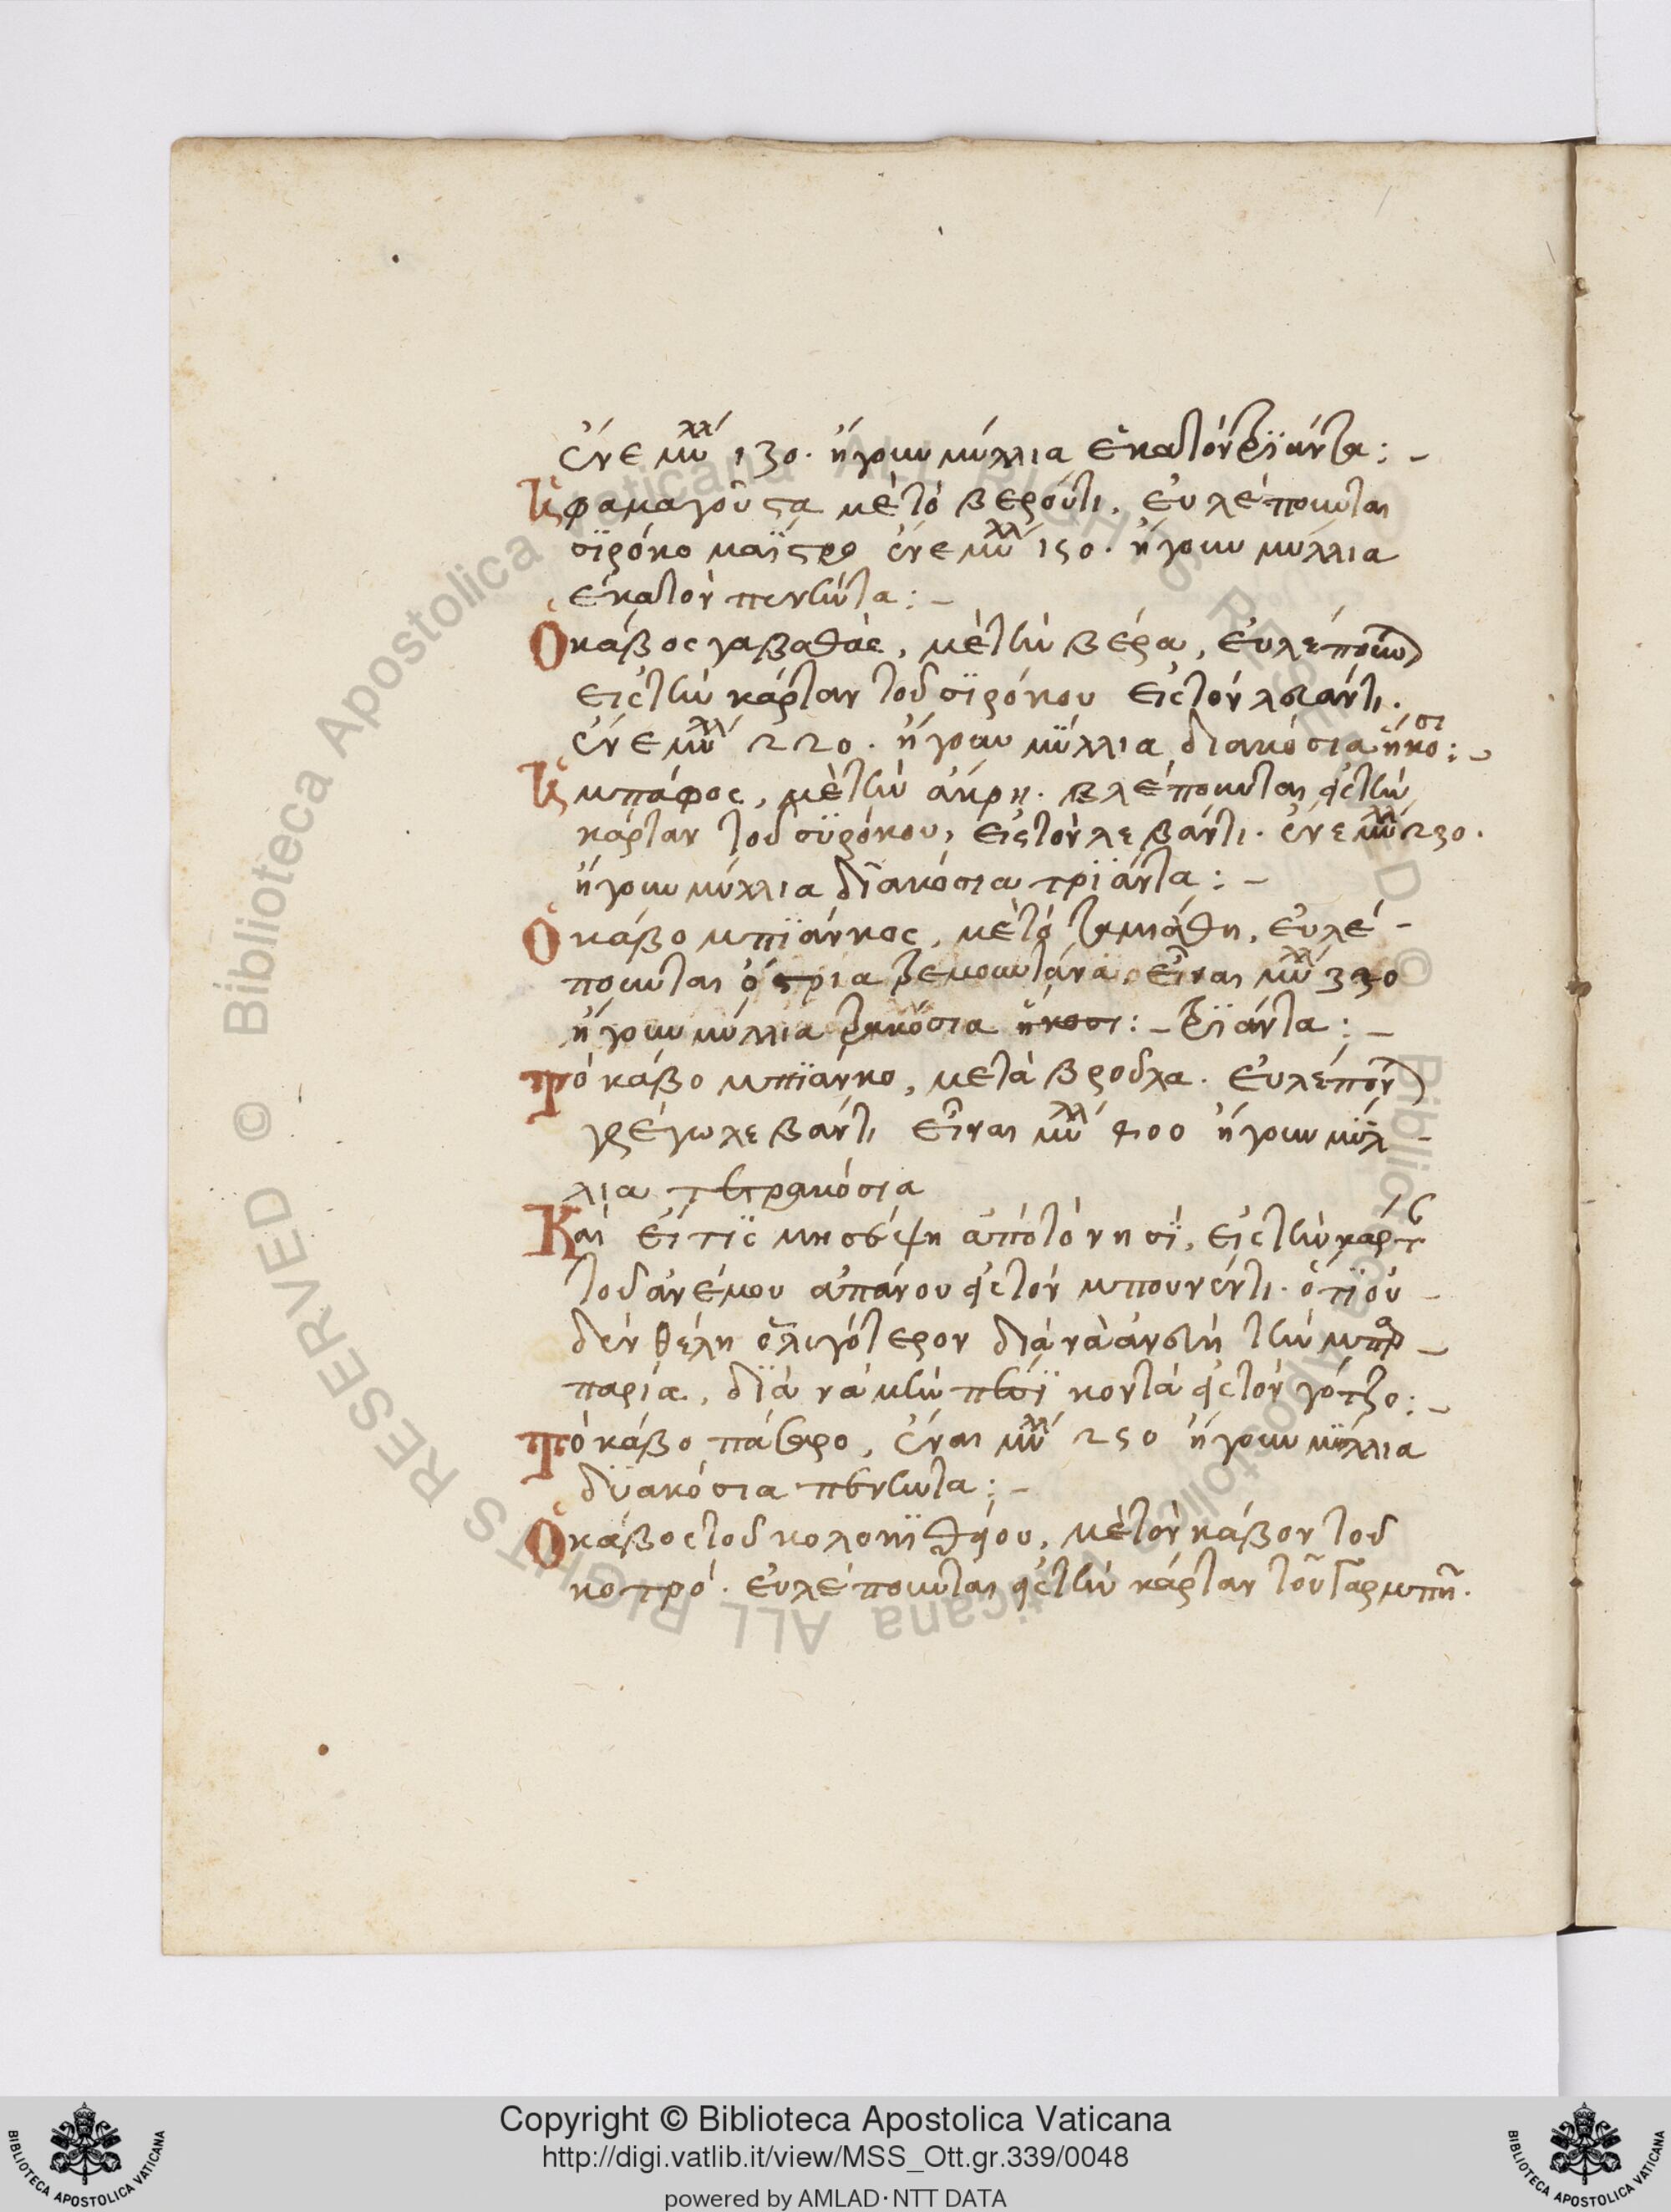 ἔνε μυλλ 130. ἤγουν μύλλια ἑκατόν τριϊάντα :-
Ἡ φαμαγοῦστα μὲ τὸ βερούτι, εὐλέπουνται
σϊρόκο μαΐστρο ἔνε μυλλ 150. ἤγουν μύλλια
ἑκατὸν πενῆντα :-
Ὁ κάβος γαβαθᾶς, μὲ τὴν βέρα, εὐλέπουν
εἰς τὴν κάρταν τοῦ σϊρόκου εἰς τὸν λεβάντι.
ἔνε μυλλ 220. ἤγουν μΰλλια διακόσια ἤκοσι :-
Ἡ μπάφος, μὲ τὴν ἄκρη. βλέπουνται εἰς τὴν
κάρταν τοῦ σϋρόκου, εἰς τὸν λεβάντι. ἔνε μυλλ 230.
ἤγουν μύλλια διακόσια τριϊάντα :-
Ὁ κάβο μπϊάνκος, μὲ τὸ ταμιάθη, εὐλέ-
πουνται ὄστρια τρεμουντάνα. εἶναι μυλλ 330
ἤγουν μύλλια τρακόσια ἤκοσι :- τριϊάντα :-
Τὸ κάβο μπϊάνκο, μετὰ βροῦλα. εὐλέπουν
γρέγω λεβάντι εἶναι μυλλ 400 ἤγουν μύλ-
λια τετρακόσια
Καὶ εἴ τις μησέψη ἀπὸ τὸ νησί, εἰς τὴν κάρτ
τοῦ ἀνέμου ἀπάνου εἰς τὸν μπουνέντι. ὅτι οὐ-
δὲν θέλη ὀλιγότερον διὰ νὰ ἀνεβῆ τὴν μπαρ-
παρία, διὰ νὰ μὴν πέση κοντὰ εἰς τὸν γότζο :-
Τὸ κάβο πάσαρο, ἔναι μυλλ 250 ἤγουν μΰλλια
δϋακόσια πενῆντα :-
Ὁ κάβος τοῦ κολοκϊθίου, μὲ τὸν κάβον τοῦ
κοτρό. εὐλέπουνται εἰς τὴν κάρταν τοῦ γαρμπῆ.
Copyright © Biblioteca Apostolica Vaticana
http://digi.vatlib.it/view/MSS_Ott.gr.339/0048
powered by AMLAD·NTT DATA
BIBLIOTECA APOSTOLICA VATICANA
BIBLIOTECA APOSTOLICA VATICANA
© Biblioteca Apostolica Vaticana ALL RIGHTS RESERVED
© Biblioteca Apostolica Vaticana ALL RIGHTS RESERVED